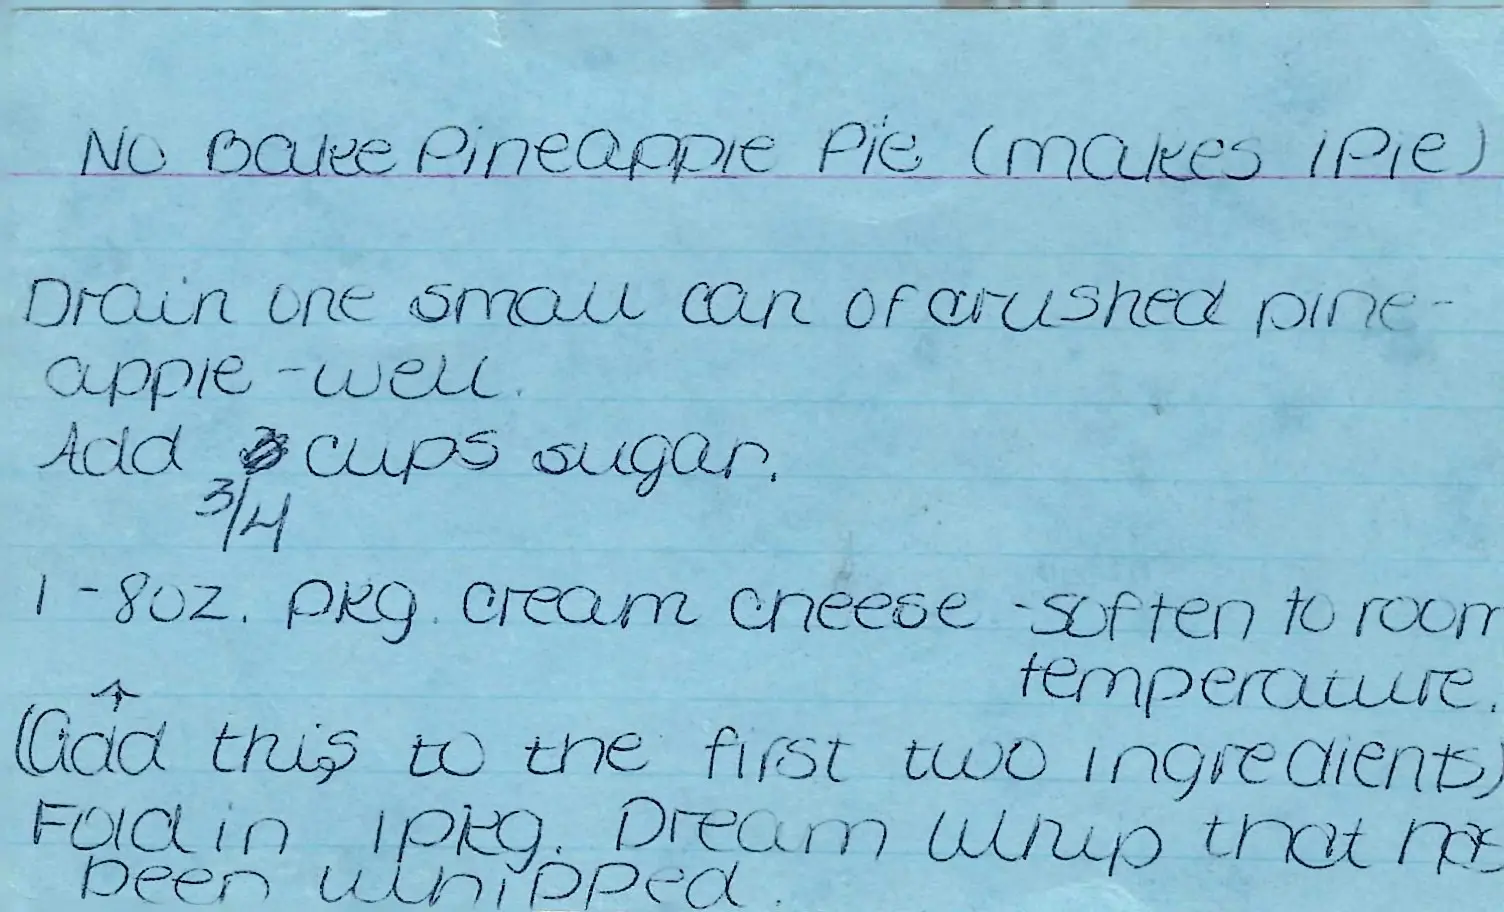 No Bake Pineapple Pie (makes 1 Pie)
Drain one small can of crushed pine-
apple - well.
Add cups sugar.
3/4
1 - 8oz. pkg. cream cheese - soften to room
temperature.
↑
(add this to the first two ingredients)
Fold in 1 pkg. Dream Whip that has
been whipped.